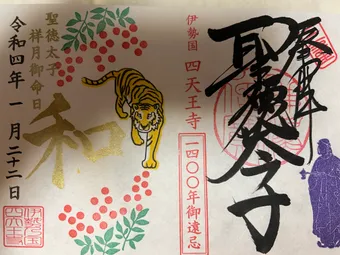 奉拝
聖徳太子
伊勢国 四天王寺
一四〇〇年御遠忌
和
聖徳太子
祥月御命日
令和四年 一月二十二日